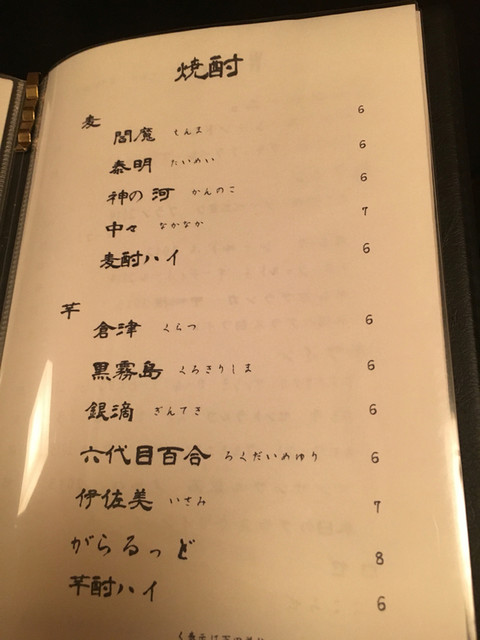 焼酎
麦
閻魔 えんま 6
泰明 たいめい 6
神の河 かんのこ 6
中々 なかなか 7
麦酎ハイ 6
芋
倉津 くらつ 6
黒霧島 くろきりしま 6
銀滴 ぎんてき 6
六代目百合 ろくだいめゆり 6
伊佐美 いさみ 7
がらるっど 8
芋酎ハイ 6